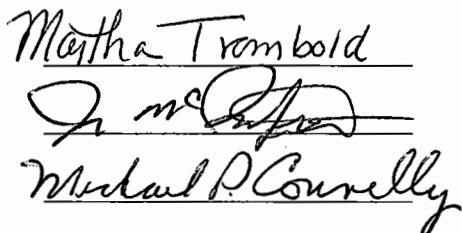 Martha Trombold
Michael P. Connelly